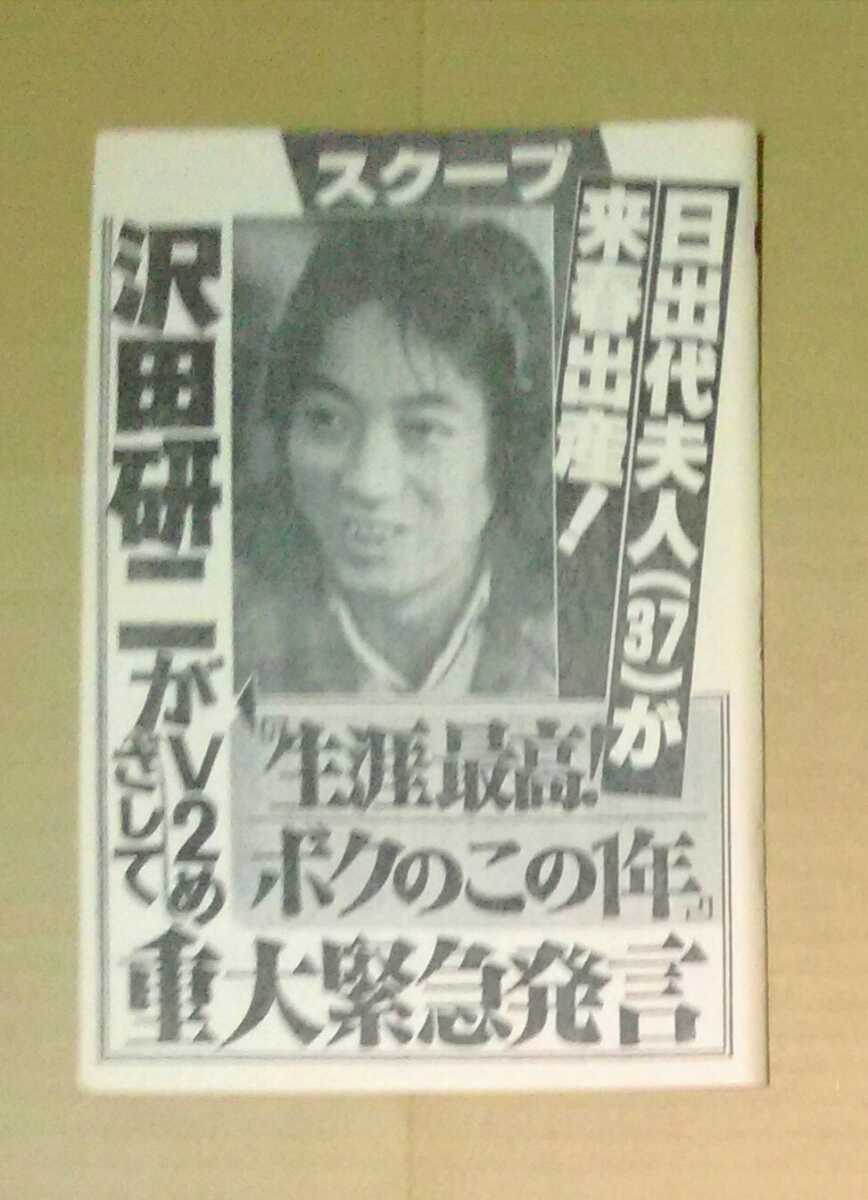 スクープ
日出代夫人(37)が
来春出産!
沢田研二が
V2め
ざして
『生涯最高!
ボクのこの1年』
重大緊急発言